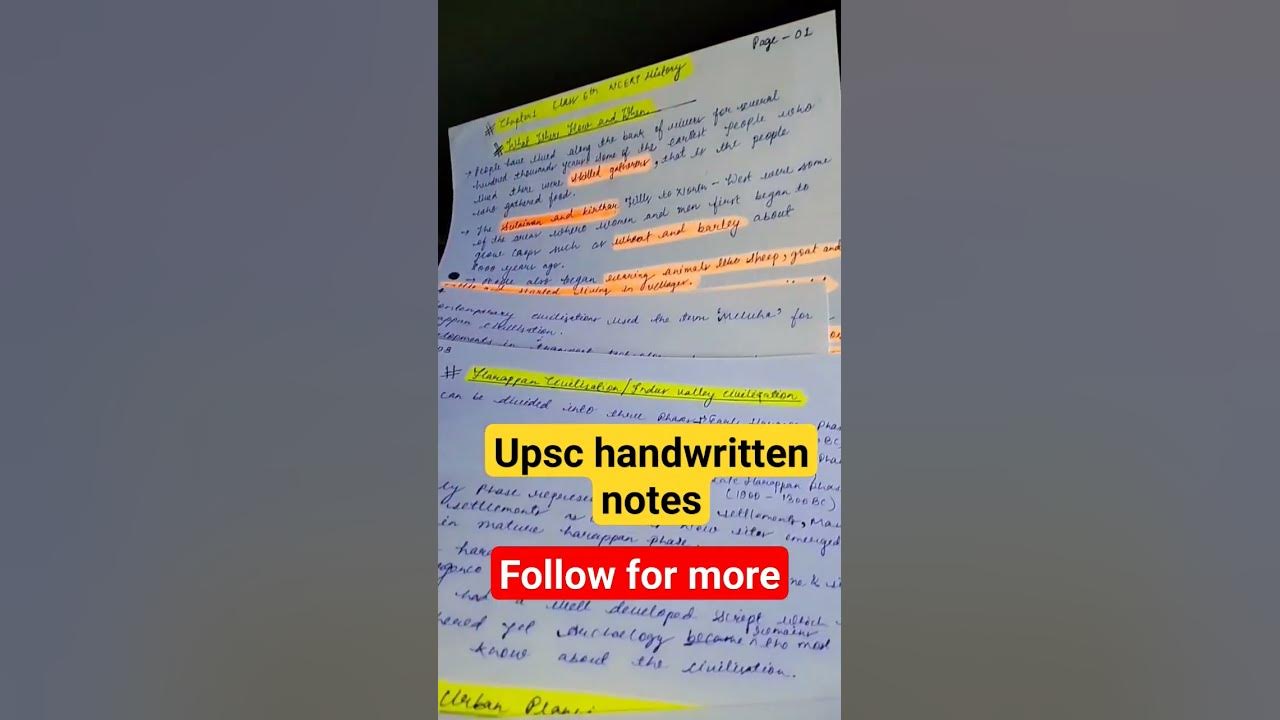 Page - 01
# Chapter 1 Class 6th NCERT History
What Where How and When
→ People have lived along the bank of rivers for several
hundred thousands years some of the earliest people who
lived there were skilled gatherers, that is the people
who gathered food.
→ The Sulaiman and Kirthar Hills to North - West were some
of the areas where women and men first began to
grow crops such as wheat and barley about
8000 years ago.
→ People also began rearing animals like sheep, goat and
started living in villages.
contemporary civilisations used the term 'Meluha' for
civilisation.
# Harappan Civilisation / Indus valley civilisation
can be divided into three
Upsc handwritten
notes
Late Harappan phase
(1900 - 1300 BC)
ly phase represe settlements,
settlements as new sites emerged
in mature harappan phase
Follow for more
had a well developed script which
yet Archaelogy remains
became the most
know about the civilisation.
Urban Plan